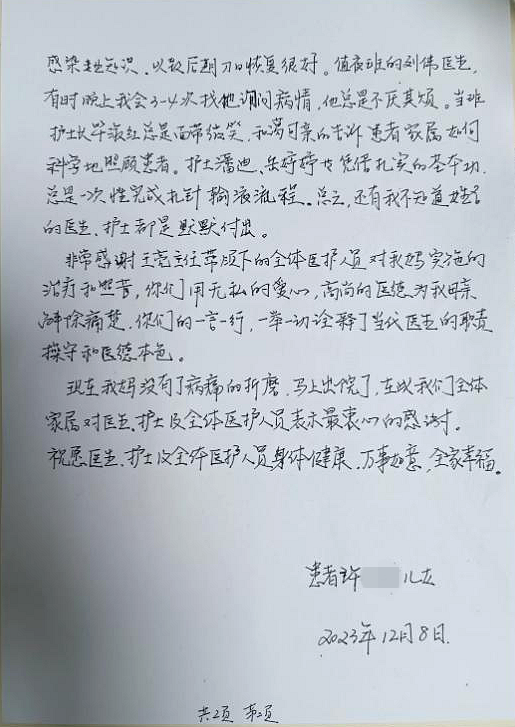 感染知识，以致后期刀口恢复很好。值夜班的刘伟医生，
有时晚上我会3-4次找他询问病情，他总是不厌其烦。当班
护士长毕淑红总是面带微笑，和蔼可亲的告诉患者家属如何
科学地照顾患者。护士潘迪、岳婷婷凭借扎实的基本功，
总是一次性完成扎针输液流程。总之，还有我不知道姓名
的医生、护士都是默默付出。
非常感谢王亮主任带领下的全体医护人员对我妈实施的
治疗和照苦，你们用无私的爱心，高尚的医德为我母亲
解除痛楚，你们的一言一行，一举一动诠释了当代医生的职责
操守和医德本色。
现在我妈没有了病痛的折磨，马上出院了，在此我们全体
家属对医生、护士及全体医护人员表示最衷心的感谢！
祝愿医生、护士及全体医护人员身体健康，万事如意，全家幸福。
患者许 儿女
2023年12月8日
共2页 第2页